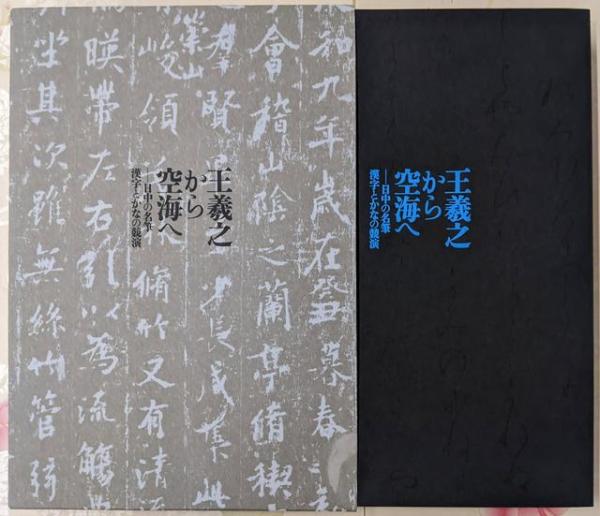 和九年歲在癸丑暮春
會稽山陰之蘭亭脩稧
賢畢至少長咸集此
崇山
峻領茂林脩竹又有清流
暎帶左右引以為流觴
坐其次雖無絲竹管弦
王羲之
から
空海へ
―日中の名筆
漢字とかなの競演
王羲之
から
空海へ
―日中の名筆
漢字とかなの競演